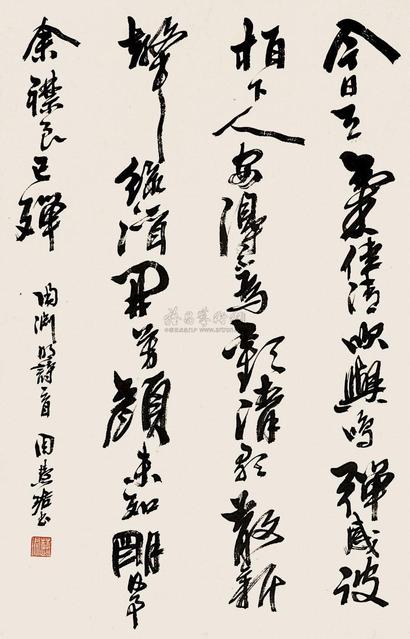 今日天氣佳清吹與鳴彈感彼
柏下人安得不為歡清歌散新
聲綠酒開芳顏未知明日事
余襟良已殫
陶淵明詩一首 周慧珺書